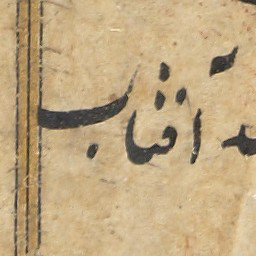 آفتاب